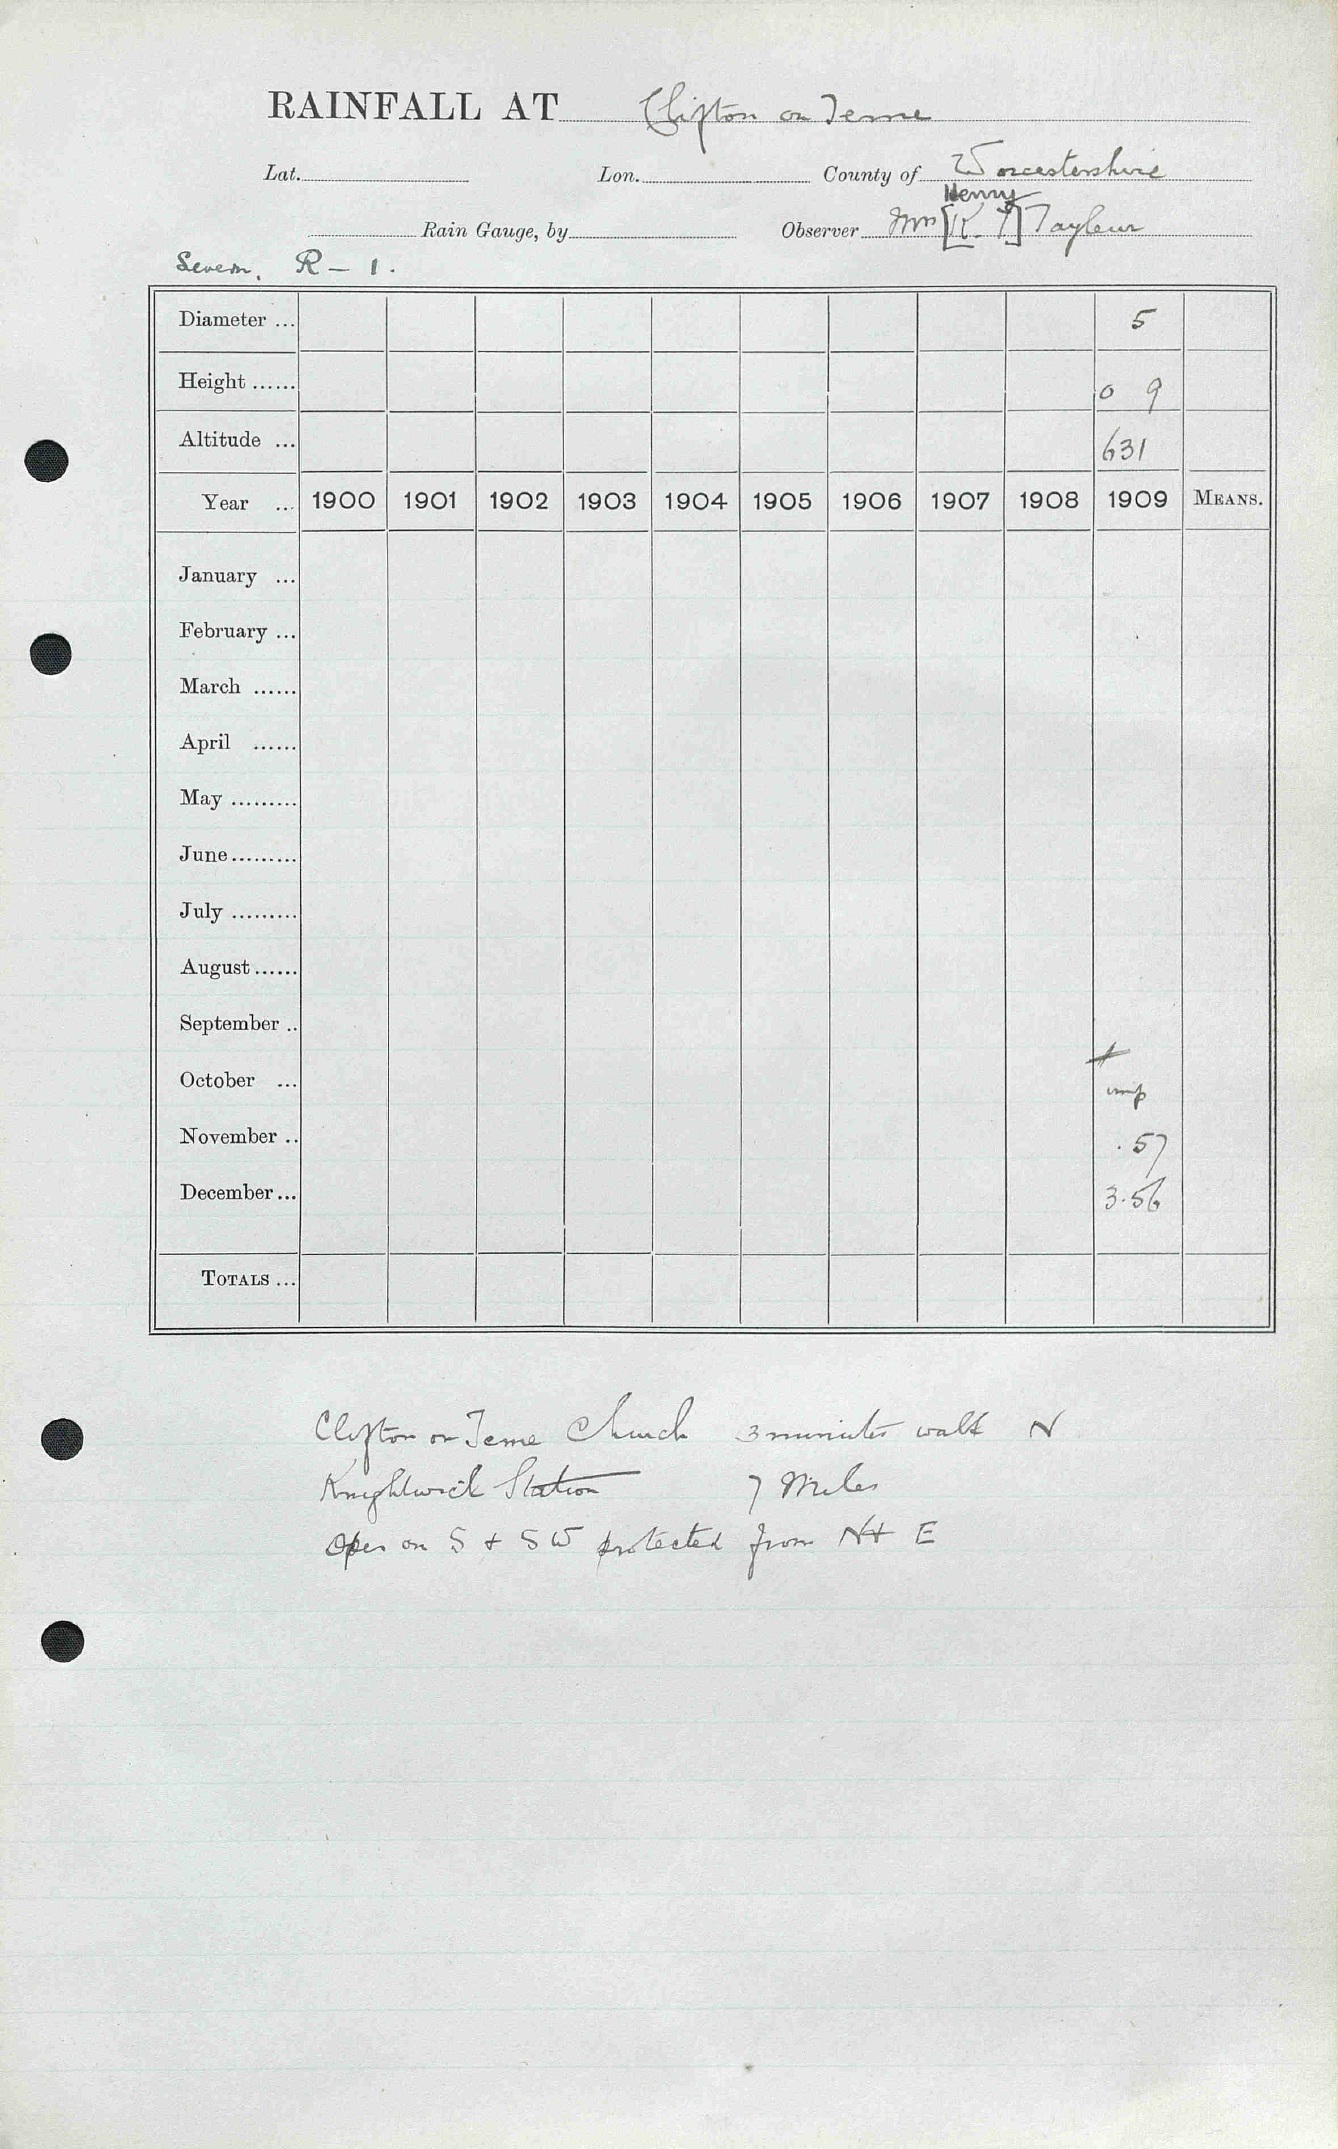 RAINFALL AT Clifton on Teme
Lat. Lon. County of Worcestershire
Henry
Rain Gauge, by Observer Mrs [K. T] Tayleur
Severn, R - 1.
Diameter ... 5
Height ...... 0 9
Altitude ... 631
Year ... 1900 1901 1902 1903 1904 1905 1906 1907 1908 1909 MEANS.
January ...
February ...
March ......
April ......
May .........
June .........
July .........
August ......
September ..
October ... imp
November .. .57
December ... 3.56
TOTALS ...
Clifton on Teme Church 3 minutes walk N
Knightwick Station 7 Miles
Open on S + SW protected from N + E